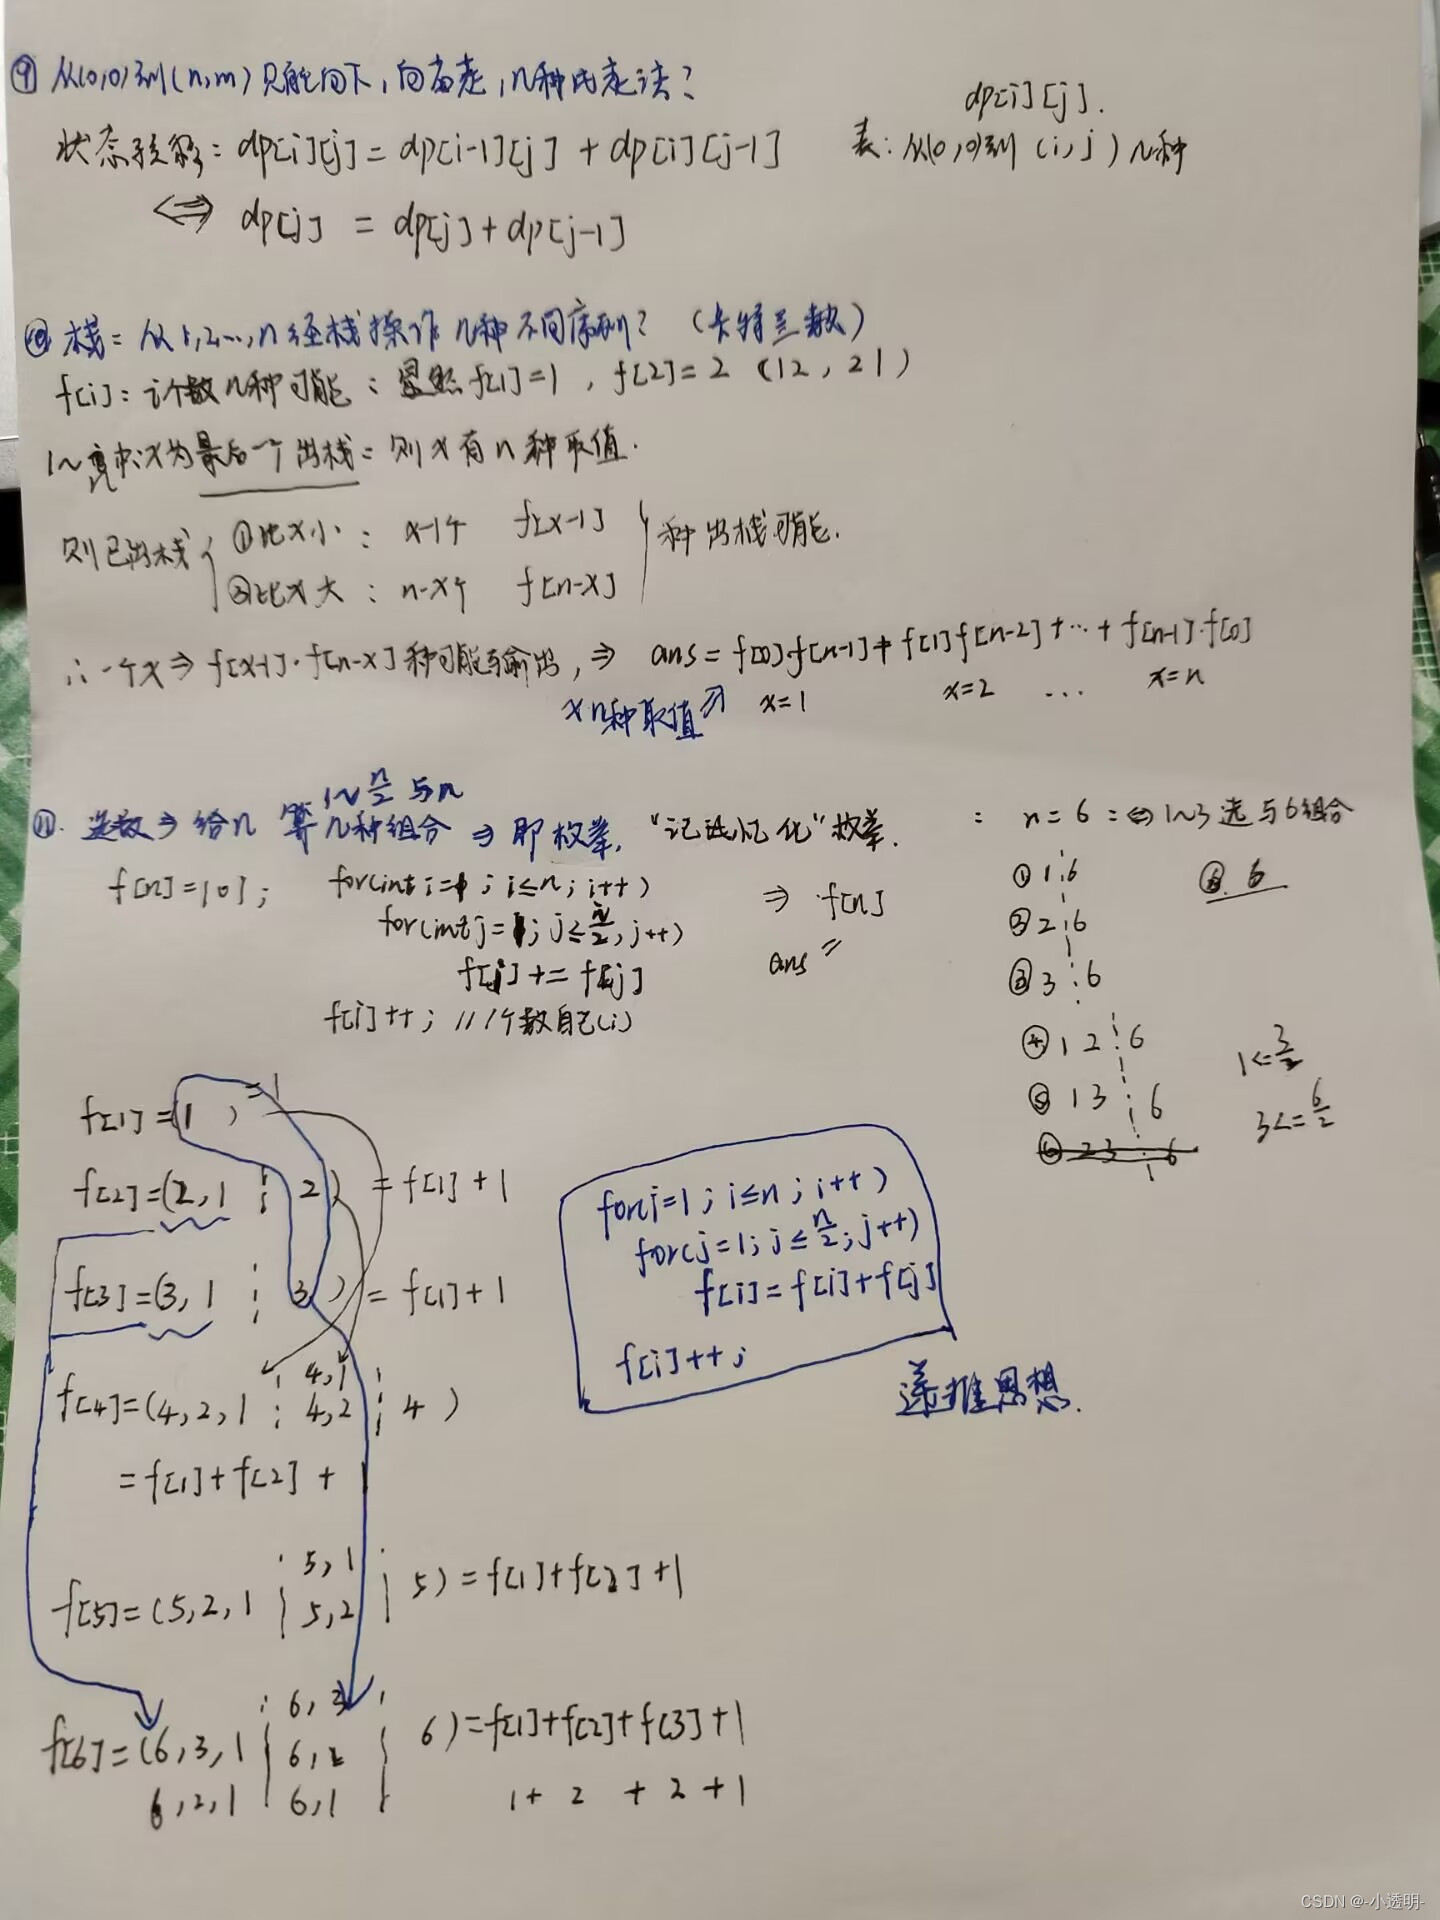 ⑨ 从(0,0)到(n,m)只能向下,向右走,几种走法?
dp[i][j].
状态转移: dp[i][j] = dp[i-1][j] + dp[i][j-1]
表:从(0,0)到(i,j)几种
⇔ dp[j] = dp[j]+dp[j-1]
⑩ 栈: 从1,2…,n经栈操作几种不同序列? (卡特兰数)
f[i]: i个数几种可能: 显然f[1]=1, f[2]=2 (12, 21)
x为最后一个出栈: 则x有n种取值.
则已出栈
①比x小: x-1个 f[x-1]
②比x大: n-x个 f[n-x]
种出栈可能.
∴一个x⇒f[x-1]·f[n-x]种可能输出, ⇒ ans = f[0]·f[n-1]+f[1]f[n-2]+…+f[n-1]·f[0]
x n种取值 x=1 x=2 … x=n
1~n/2 与n
⑪. 选数⇒给n 算几种组合⇒即枚举, "记忆化"枚举.
: n=6:⇔1~3选与6组合
f[n]={0}; for(int i=1; i≤n; i++) ⇒ f[n]
for(int j=1; j≤n/2, j++)
f[i] += f[j]
ans =
f[i]++; //1个数自己(i)
① 1 6
⑥. 6
② 2 6
③ 3 6
④ 1 2 6
⑤ 1 3 6
⑥ 2 3 6
1<=2/2
3<=6/2
f[1]=(1 ) =1
f[2]=(2,1 2) = f[1]+1
f[3]=(3,1 3) = f[1]+1
4,1
f[4]=(4,2,1 4,2 4 )
=f[1]+f[2]+1
5,1
f[5]=(5,2,1 5,2 5)=f[1]+f[2]+1
6,3
f[6]=(6,3,1 6,2 6)=f[1]+f[2]+f[3]+1
6,2,1 6,1 1+ 2 + 2 +1
for(i=1; i≤n; i++)
for(j=1; j≤n/2; j++)
f[i]=f[i]+f[j]
f[i]++;
递推思想.
CSDN @-小透明-